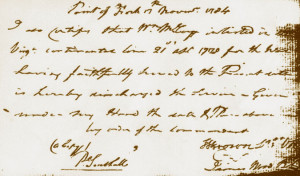 Point of Fork 7th Novemr. 1784
I do certify that Wm. McKay inlisted in
Virg. continental line 21st 1780 for the War
having faithfully served to the Present date
is hereby discharged the Service Given
under my Hand the date & Place above
by order of the Commandant
(a Copy)
Wm. Southall
James Wood